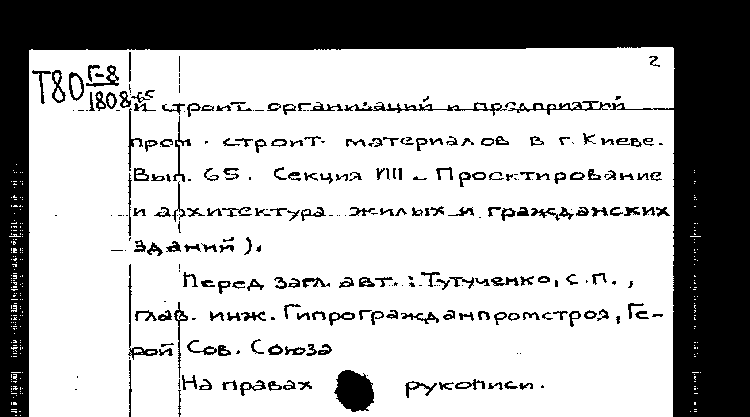 2
Т80 Г-8
1808-65
й строит. организаций и предприятий
пром. строит. материалов в г. Киеве.
Вып. 65. Секция VIII - Проектирование
и архитектура жилых и гражданских
зданий).
Перед загл. авт.: Тутученко, С.П.,
глав. инж. Гипрогражданпромстроя, Ге-
рой Сов. Союза
На правах рукописи.